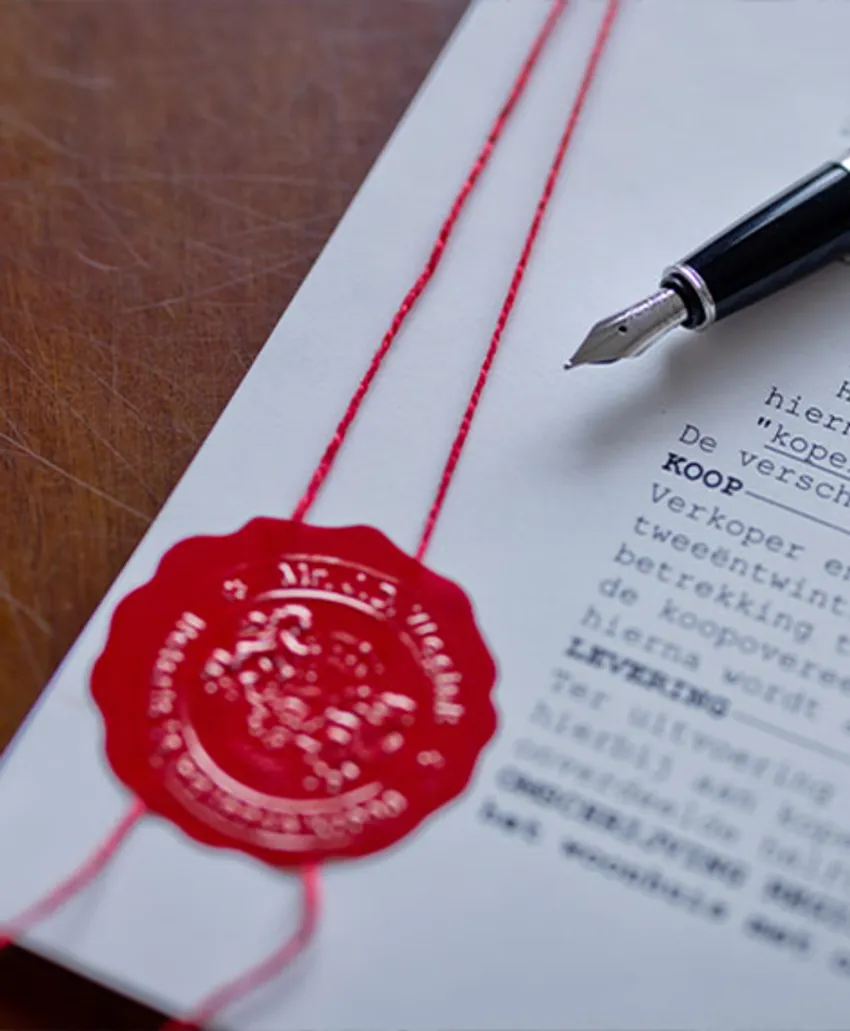 H
hiern
"kope
De versch
KOOP
Verkoper e
tweeëntwint
betrekking t
de koopoveree
hierna wordt
LEVERING
Ter uitvoering
hierbij aan kope
onverdeelde helf
OMSCHRIJVING REGI
het woonhuis met
Mr.